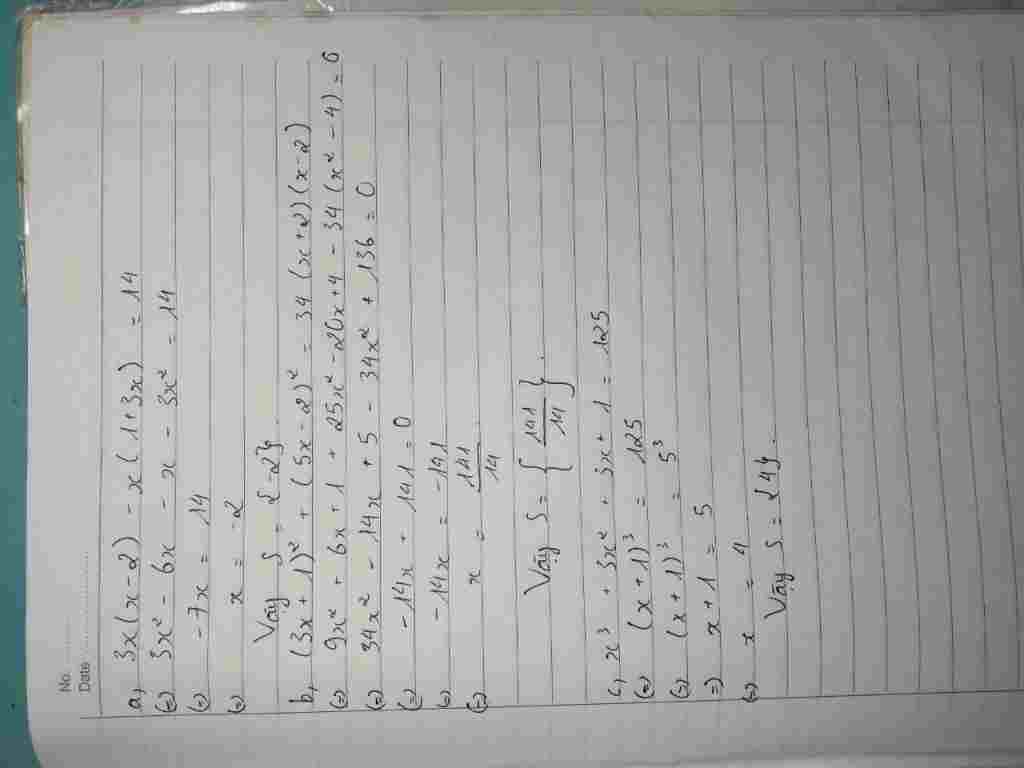 No. ............
Date ........................
a, 3x(x-2) - x(1+3x) = 14
(=) 3x² - 6x - x - 3x² = 14
(=) -7x = 14
(=) x = -2
Vậy S = {-2}
b, (3x+1)² + (5x-2)² = 34(x+2)(x-2)
(=) 9x² + 6x + 1 + 25x² - 20x + 4 - 34(x² - 4) = 0
(=) 34x² - 14x + 5 - 34x² + 136 = 0
(=) -14x + 141 = 0
(=) -14x = -141
(=) x = 141/14
Vậy S = {141/14}.
c, x³ + 3x² + 3x + 1 = 125
(=) (x+1)³ = 125
(=) (x+1)³ = 5³
=) x+1 = 5
(=) x = 4
Vậy S = {4}.